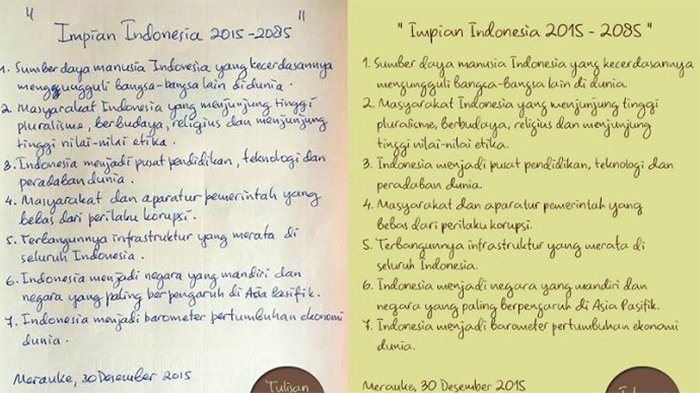 " Impian Indonesia 2015-2085 "
1. Sumber daya manusia Indonesia yang kecerdasannya
mengungguli bangsa-bangsa lain di dunia.
2. Masyarakat Indonesia yang menjunjung tinggi
pluralisme, berbudaya, religius dan menjunjung
tinggi nilai-nilai etika.
3. Indonesia menjadi pusat pendidikan, teknologi dan
peradaban dunia.
4. Masyarakat dan aparatur pemerintah yang
bebas dari perilaku korupsi.
5. Terbangunnya infrastruktur yang merata di
seluruh Indonesia.
6. Indonesia menjadi negara yang mandiri dan
negara yang paling berpengaruh di Asia Pasifik.
7. Indonesia menjadi barometer pertumbuhan ekonomi
dunia.
Merauke, 30 Desember 2015
Tulisan
" Impian Indonesia 2015 - 2085 "
1. Sumber daya manusia Indonesia yang kecerdasannya
mengungguli bangsa-bangsa lain di dunia.
2. Masyarakat Indonesia yang menjunjung tinggi
pluralisme, berbudaya, religius dan menjunjung
tinggi nilai-nilai etika.
3. Indonesia menjadi pusat pendidikan, teknologi dan
peradaban dunia.
4. Masyarakat dan aparatur pemerintah yang
bebas dari perilaku korupsi.
5. Terbangunnya infrastruktur yang merata di
seluruh Indonesia.
6. Indonesia menjadi negara yang mandiri dan
negara yang paling berpengaruh di Asia Pasifik.
7. Indonesia menjadi barometer pertumbuhan ekonomi
dunia.
Merauke, 30 Desember 2015